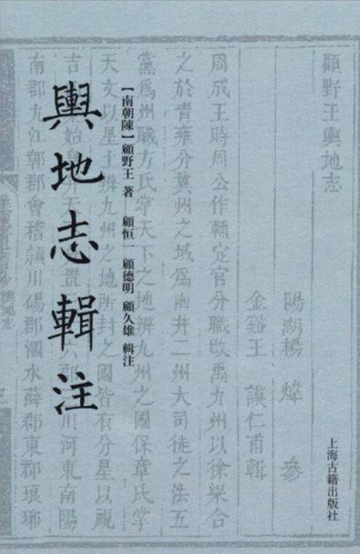 顧野王輿地志
陽湖楊 煒 參
金谿王 謨仁甫輯
周成王時周公作輔定官分職改禹九州以徐梁合
之於青雍分冀州之域為幽并二州大司徒之法五
黨為州職方氏掌天下之地辨九州之國保章氏掌
天文以星土辨九州之地所封之國皆有分星以視
吉 始皇 天 置 六郡 川河東南陽
南郡九江鄣郡會稽潁川碭郡泗水薛郡東郡琅琊
輿地志輯注
[南朝陳]顧野王 著
顧恒一 顧德明 顧久雄 輯注
上海古籍出版社